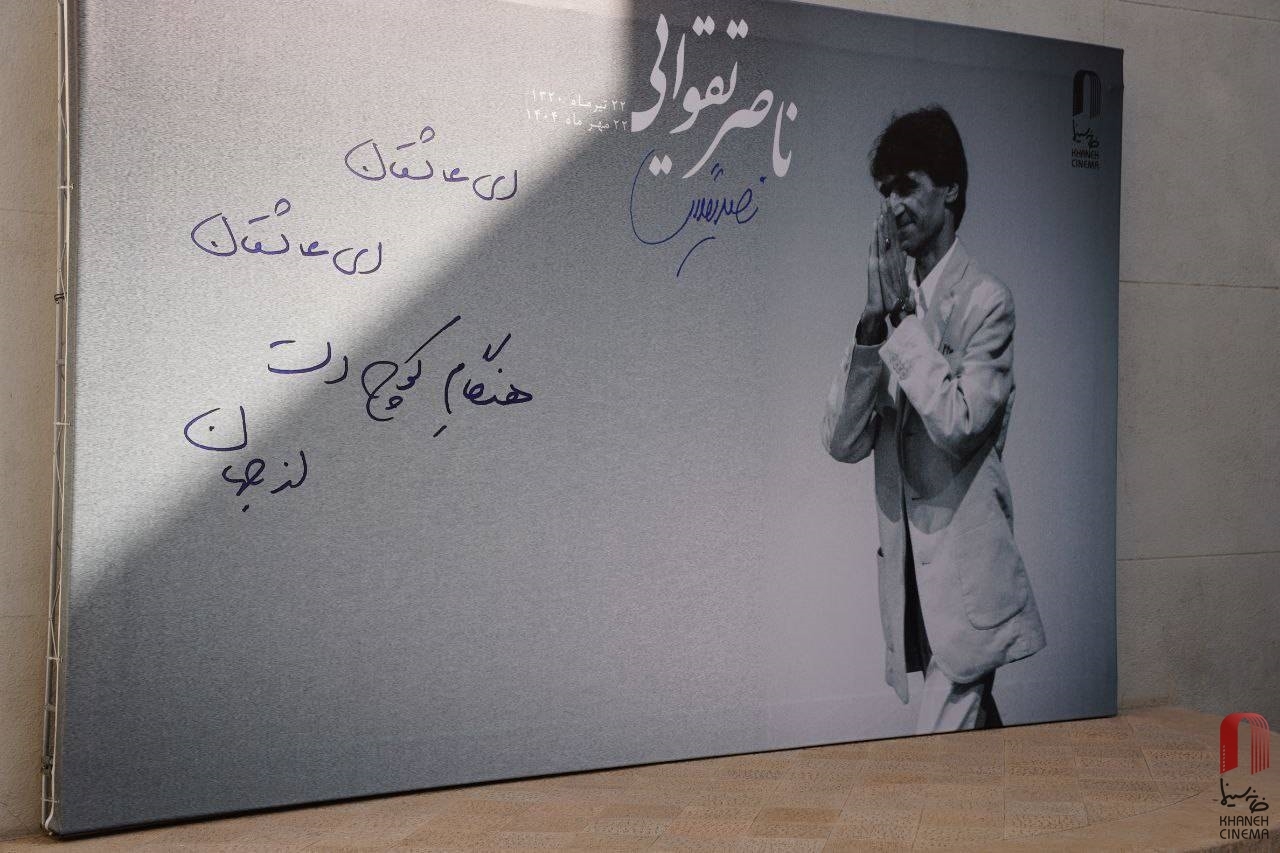 ناصر تقوایی
۲۲ تیرماه ۱۳۲۰
۲۲ مهر ماه ۱۴۰۴
ای عاشقان
ای عاشقان
هنگامِ کوچ است
از جهان
خانه سینما
KHANEH
CINEMA
خانه سینما
KHANEH
CINEMA